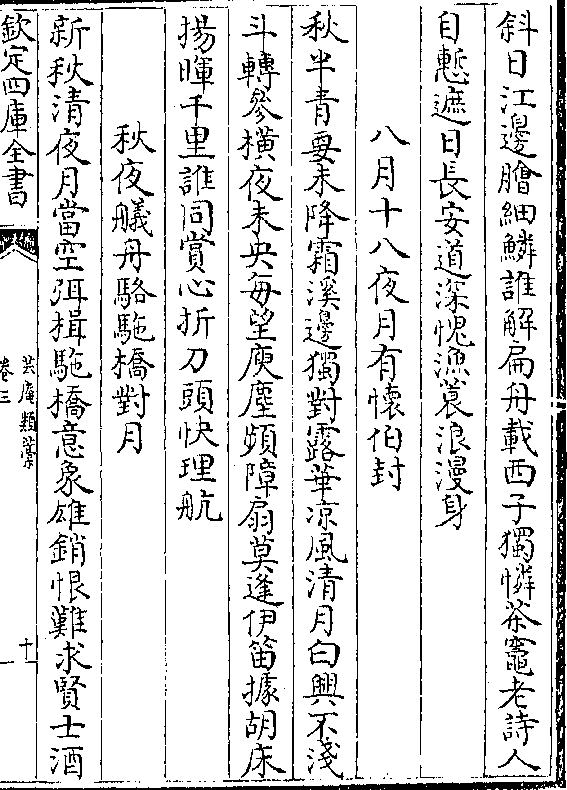 斜日江邊膾細鱗誰解扁舟載西子獨憐茶竈老詩人
自慙遮日長安道深愧漁蓑浪漫身
八月十八夜月有懷伯封
秋半青要未降霜溪邊獨對露華凉風清月白興不淺
斗轉參橫夜未央每望庾塵頻障扇莫逢伊笛據胡床
揚暉千里誰同賞心折刀頭快理航
秋夜艤舟駱駞橋對月
新秋清夜月當空弭楫駞橋意象雄銷恨難求賢士酒
欽定四庫全書
芸庵類藁
卷三
十